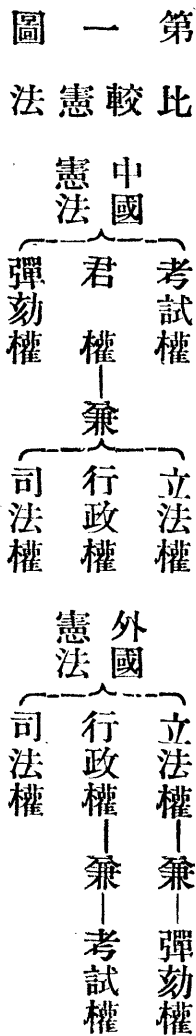 第一圖
比較憲法
中國憲法
考試權
君權—兼
彈劾權
立法權
行政權
司法權
外國憲法
立法權—兼—彈劾權
行政權—兼—考試權
司法權